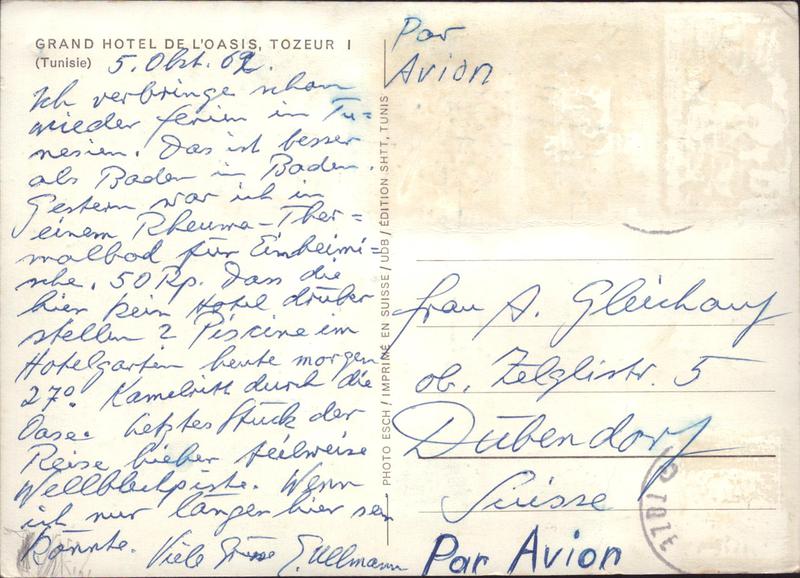 GRAND HOTEL DE L'OASIS, TOZEUR I
(Tunisie) 5. Okt. 69.
Ich verbringe schon
wieder Ferien in Tu=
nesien. Das ist besser
als Baden in Baden.
Gestern war ich in
einem Rheuma-Ther=
malbad für Einheimi=
sche. 50 Rp. Dass die
hier kein Hotel drüber
stellen? Piscine im
Hotelgarten heute morgen
27º. Kamelritt durch die
Oase. Letztes Stück der
Reise hieher teilweise
Wellblechpiste. Wenn
ich nur länger hier sein
könnte. Viele Grüsse E. Ullmann
PHOTO ESCH / IMPRIMÉ EN SUISSE / UDB / ÉDITION SHTT, TUNIS
Par
Avion
Frau A. Gleichauf
ob. Zelglistr. 5
Dübendorf
Suisse
Par Avion